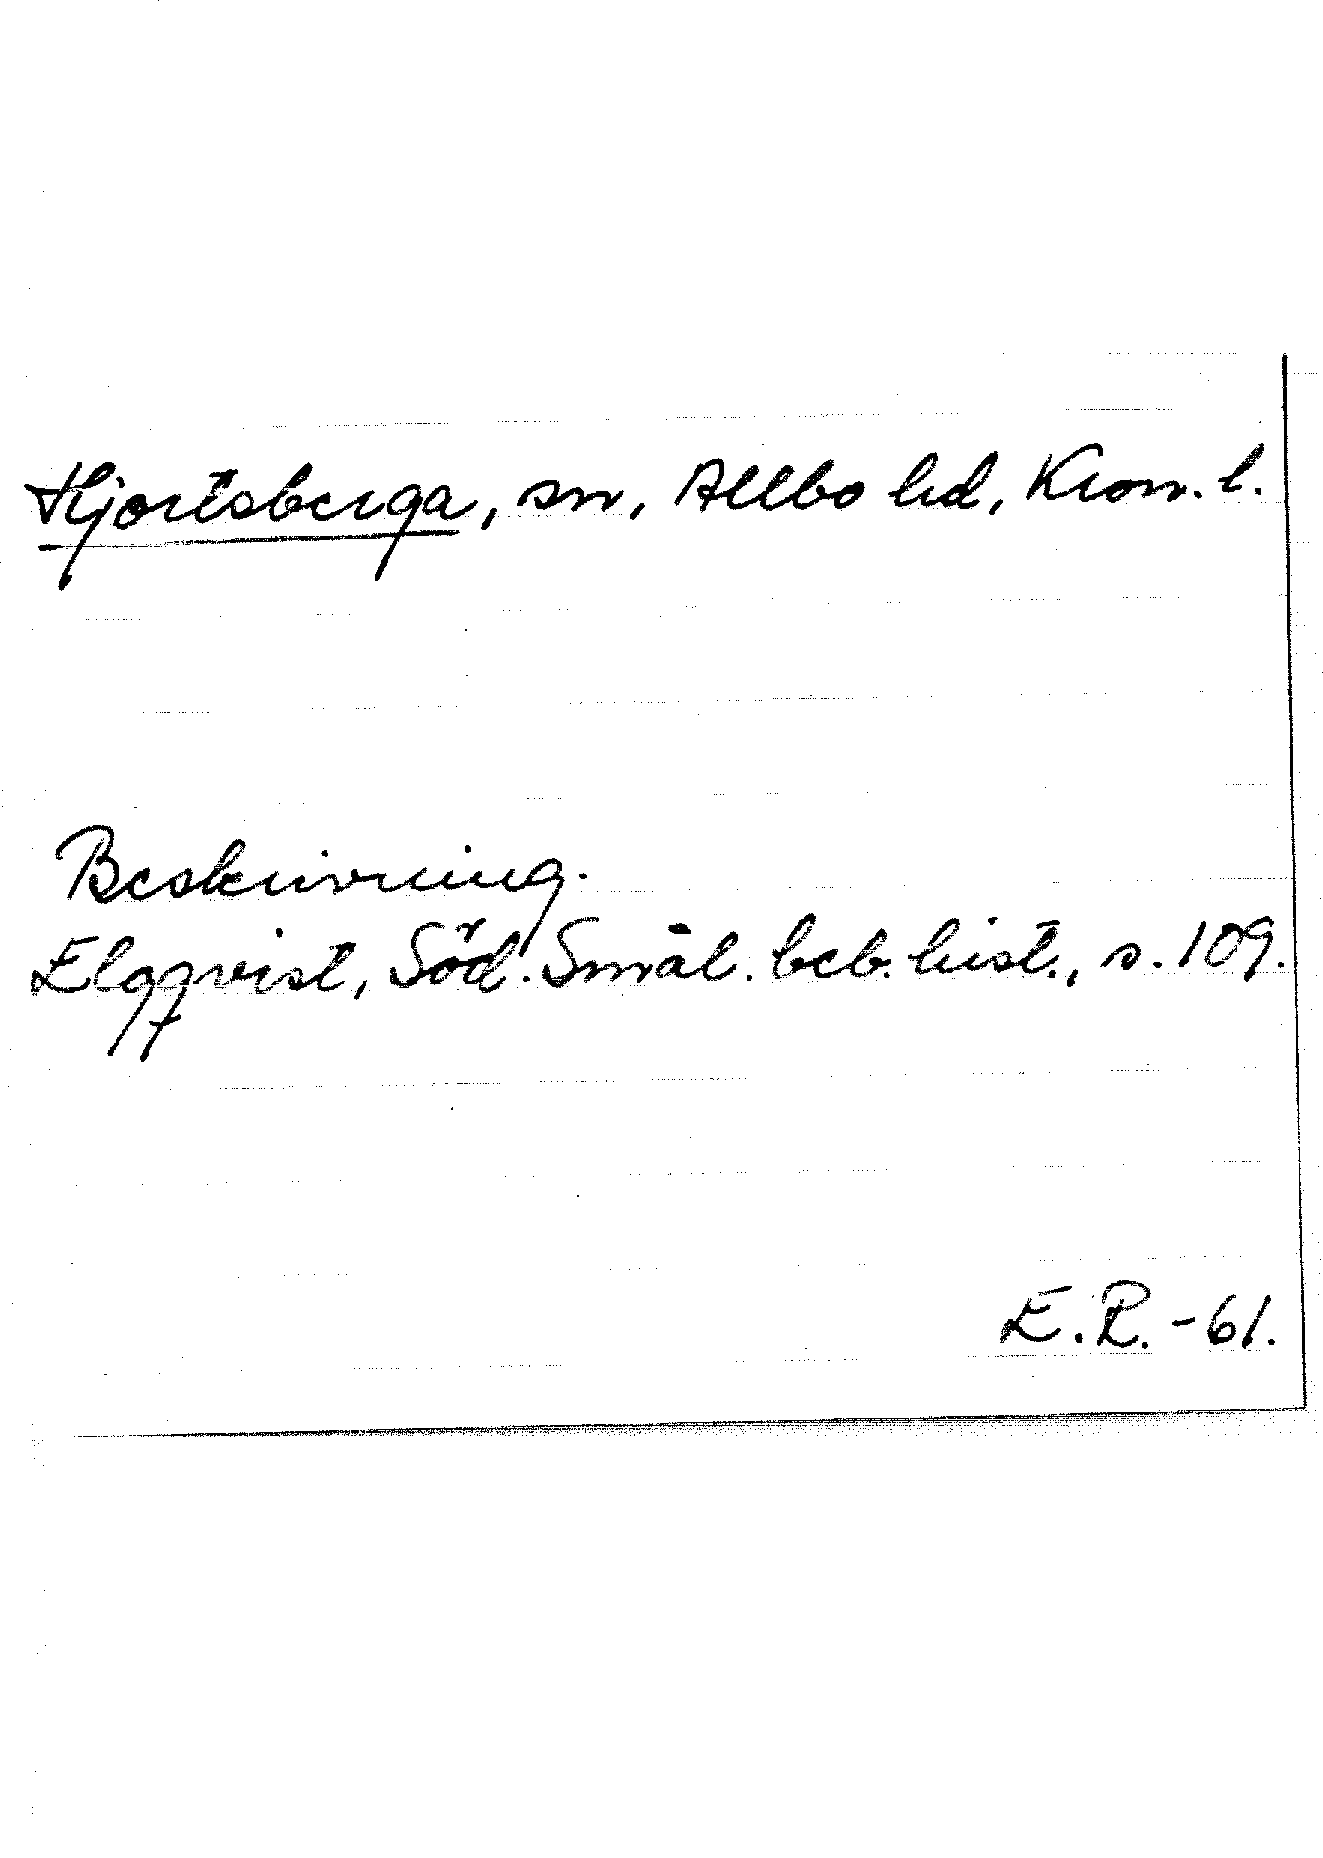 Hjortsberga, sn, Allbo hd, Kron. l.
Beskrivning.
Elgqvist, Söd. Smål. beb. hist., s. 109.
E.R. -61.